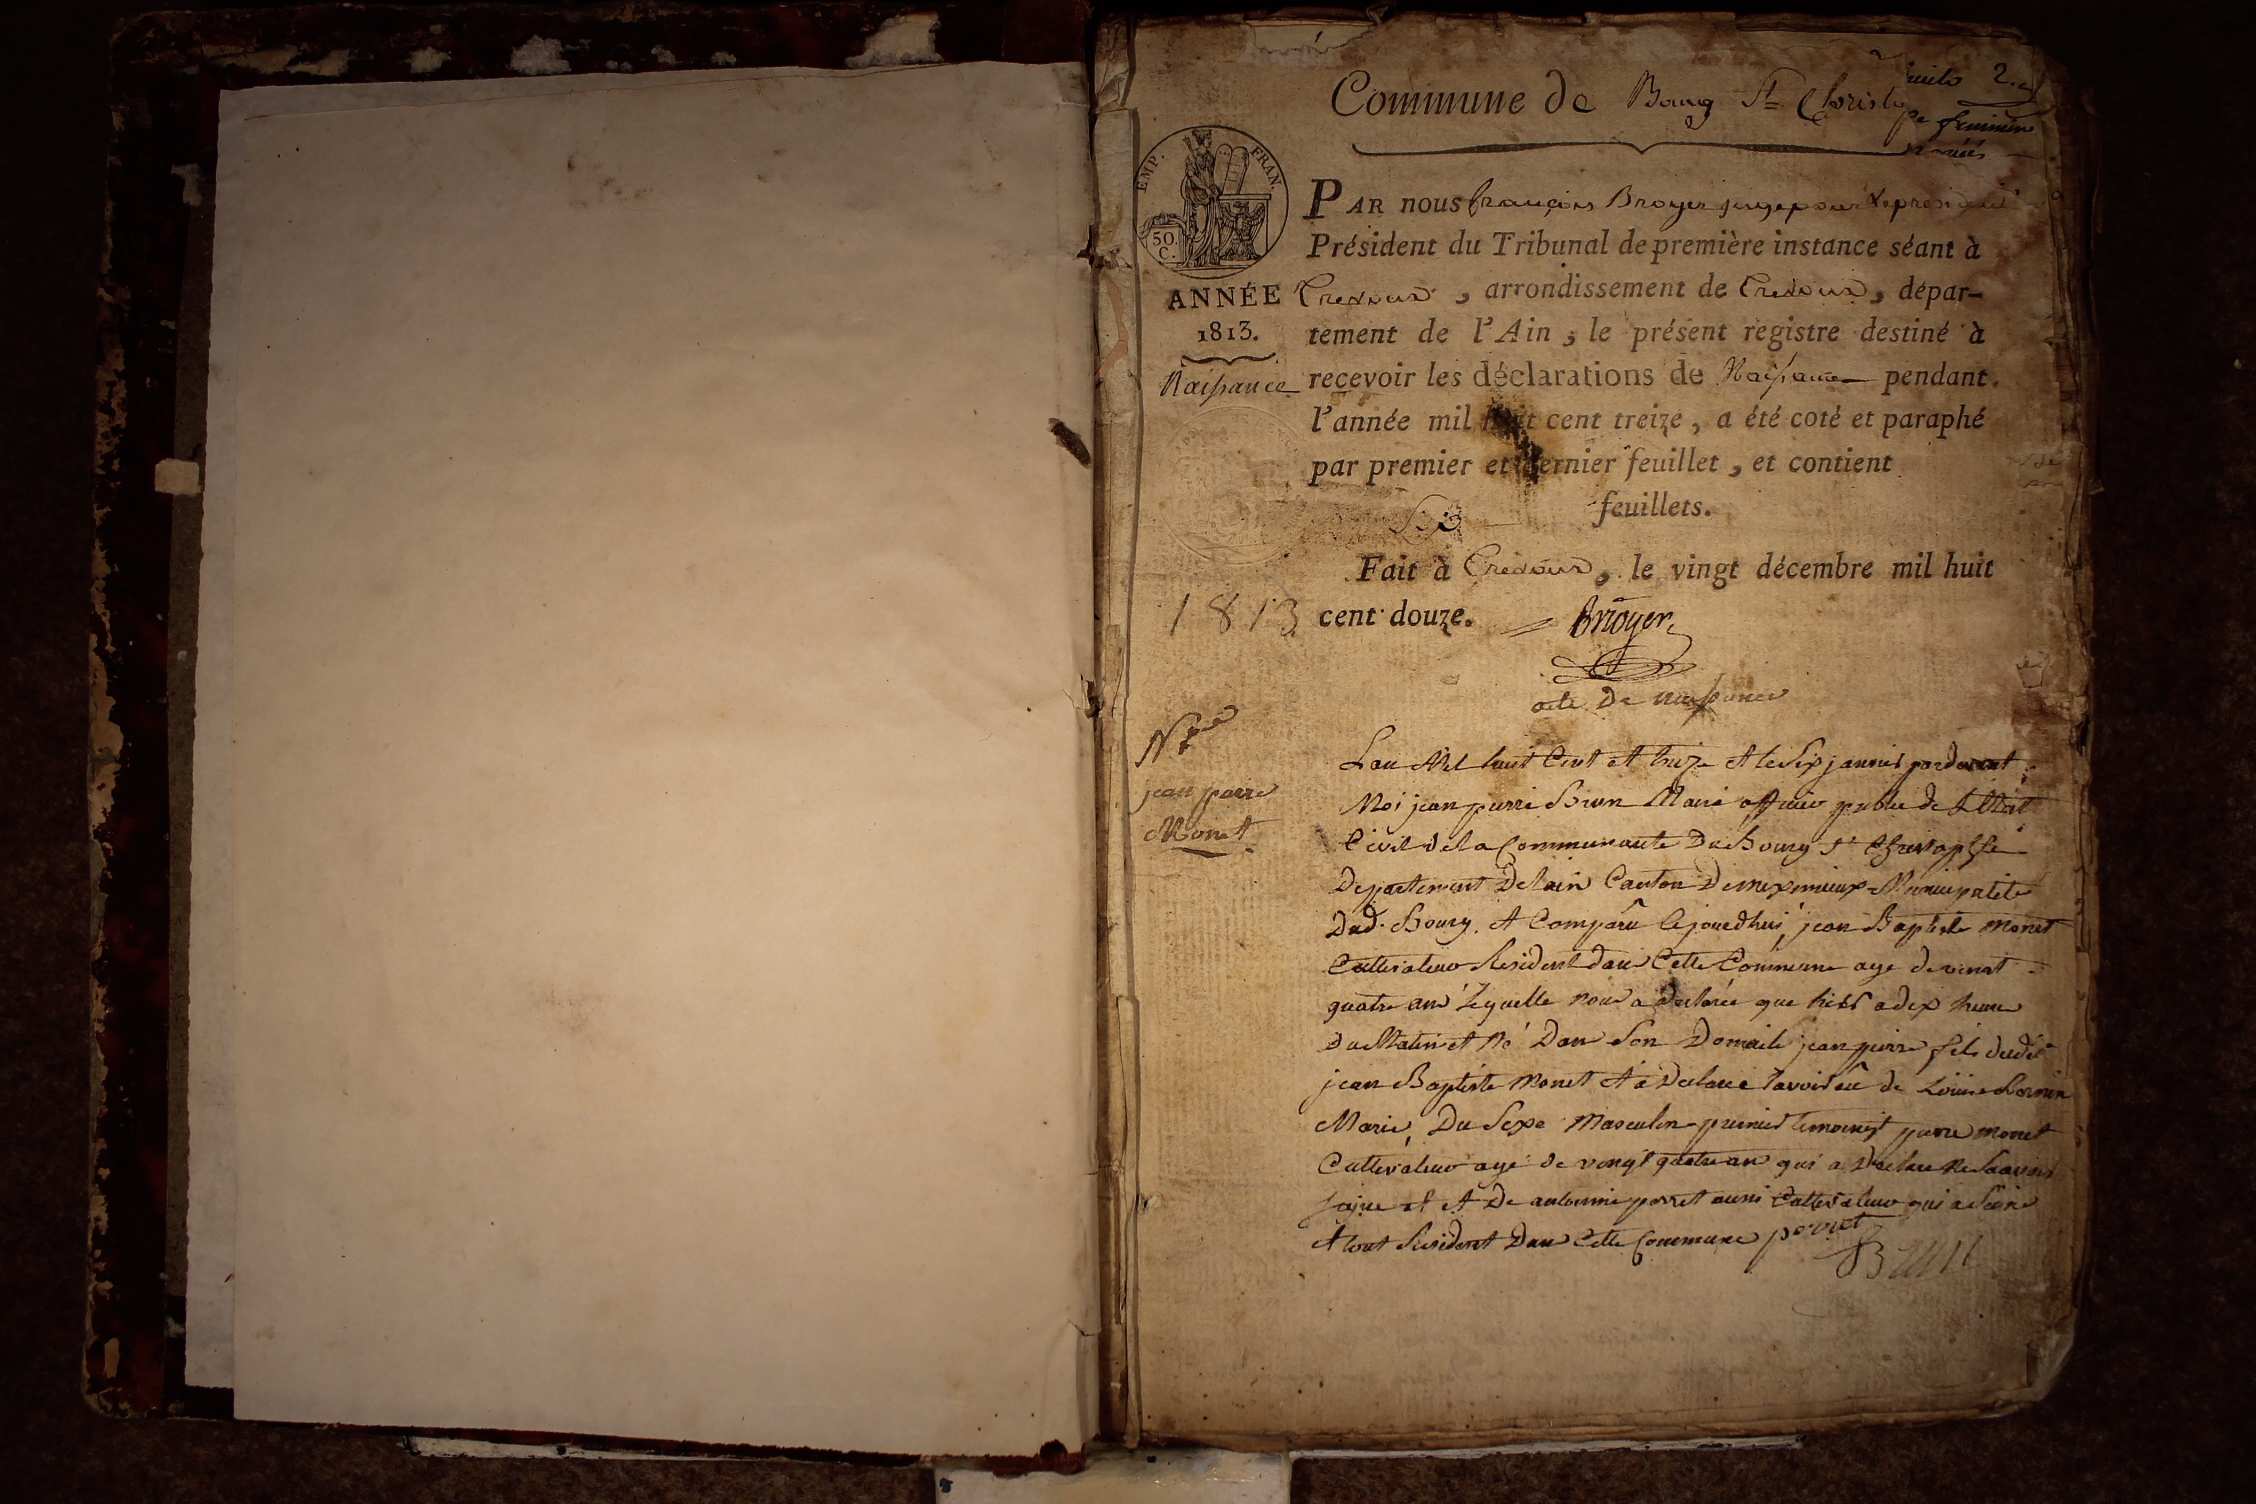 Commune de Bourg St Christophe
EMP. FRAN.
50. C.
PAR nous françois Broyer juge pour le president
Président du Tribunal de première instance séant à
ANNÉE Trevoux, arrondissement de Trevoux, dépar-
1813. tement de l'Ain, le présent registre destiné à
Naissance recevoir les déclarations de Naissance pendant
l'année mil huit cent treize, a été coté et paraphé
par premier et dernier feuillet, et contient
Six feuillets.
Fait à Trevoux, le vingt décembre mil huit
1813 cent douze. Broyer
acte De naissance
jean pierre
Monet
Lan Mil huit Cent et treze et le Six janvier pardevant
Moi jean pierre Brun Maire officier public de Létat
Civil de la Communauté Du Bourg St Christophe
Departement Delain Canton De meximieux Municipalité
Dud. Bourg. et Comparu Cejourdhui jean Baptiste monet
Cultivateur Resident dans Cette Commune age de vint
quatre ans Lequelle nous a declarée que hier a dix heure
du Matin et né Dans Son Domicile jean pierre fils dudit
jean Baptiste monet et a Declaré lavoir eu de Louise
Marie, Du Sexe Masculin premier temoins pierre monet
Cultivateur age de vingt quatre ans qui a Declare ne Savoir
signe et De antoine perret aussi Cultivateur qui a Signé
et tout Resident Dans Cette Commune perret
Brun